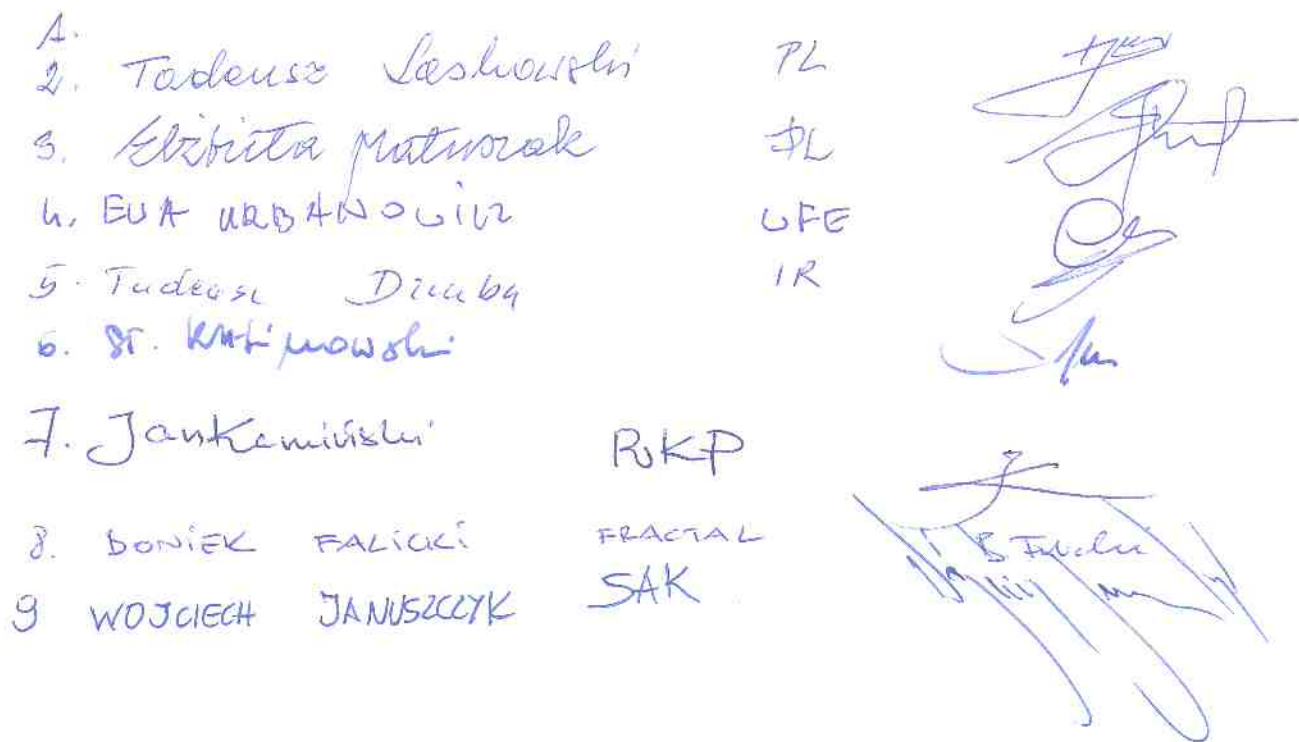 1.
2. Tadeusz Laskowski PL
3. Elżbieta Matuszak PL
4. EWA URBANOWICZ UFE
5. Tadeusz Dziuba IR
6. St. Kalinowski
7. Jan Kamiński RKP
8. BONIEK FALICKI FRACTAL
9 WOJCIECH JANUSZCZYK SAK